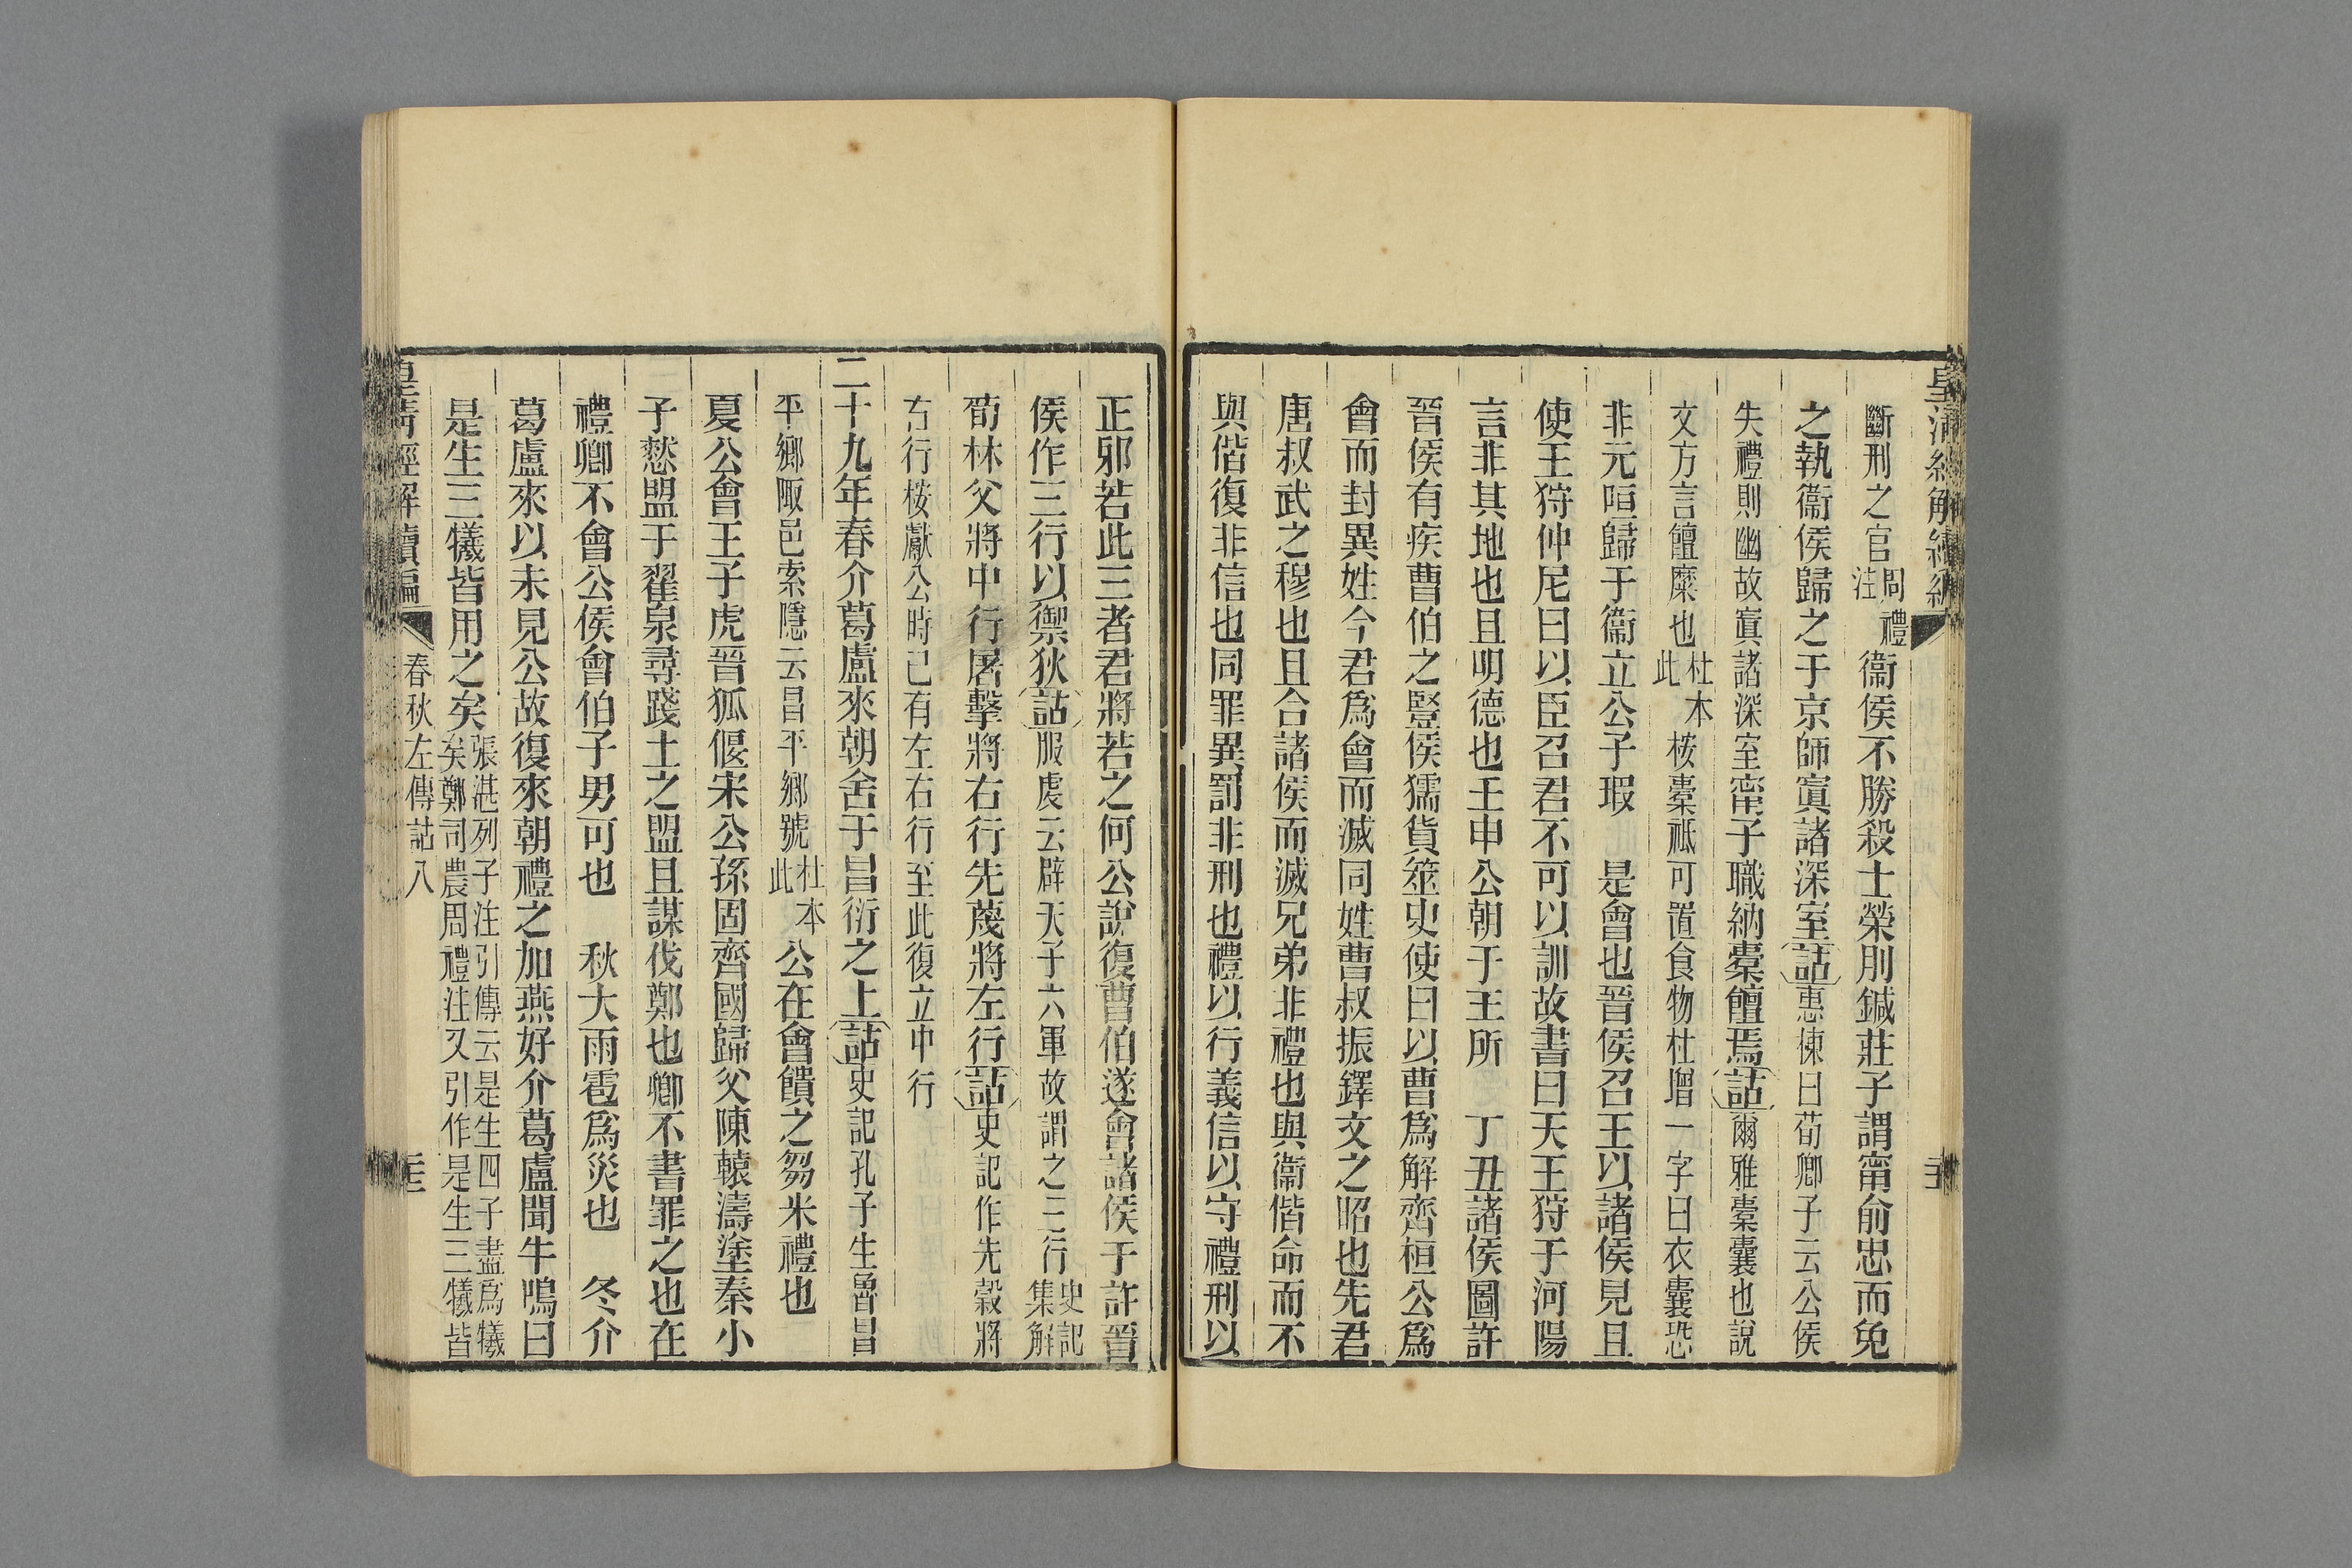 皇清經解續編
斷刑之官周禮注衞侯不勝殺士榮刖鍼莊子謂甯俞忠而免
之執衞侯歸之于京師寘諸深室詁惠棟曰荀卿子云公侯
失禮則幽故寘諸深室甯子職納橐饘焉詁爾雅橐囊也說
文方言饘糜也杜本此桉橐祗可置食物杜增一字曰衣囊恐
非元咺歸于衞立公子瑕　是會也晉侯召王以諸侯見且
使王狩仲尼曰以臣召君不可以訓故書曰天王狩于河陽
言非其地也且明德也壬申公朝于王所　丁丑諸侯圍許
晉侯有疾曹伯之豎侯獳貨筮史使曰以曹爲解齊桓公爲
會而封異姓今君爲會而滅同姓曹叔振鐸文之昭也先君
唐叔武之穆也且合諸侯而滅兄弟非禮也與衞偕命而不
與偕復非信也同罪異罰非刑也禮以行義信以守禮刑以
正邪若此三者君將若之何公說復曹伯遂會諸侯于許晉
侯作三行以禦狄詁服虔云辟天子六軍故謂之三行史記集解
荀林父將中行屠擊將右行先蔑將左行詁史記作先縠將
右行桉獻公時已有左右行至此復立中行
二十九年春介葛盧來朝舍于昌衍之上詁史記孔子生魯昌
平鄉陬邑索隱云昌平鄉號杜本此公在會饋之芻米禮也
夏公會王子虎晉狐偃宋公孫固齊國歸父陳轅濤塗秦小
子憖盟于翟泉尋踐土之盟且謀伐鄭也卿不書罪之也在
禮卿不會公侯會伯子男可也　秋大雨雹爲災也　冬介
葛盧來以未見公故復來朝禮之加燕好介葛盧聞牛鳴曰
是生三犧皆用之矣張湛列子注引傳云是生四子盡爲犧矣鄭司農周禮注又引作是生三犧皆
皇清經解續編　春秋左傳詁八